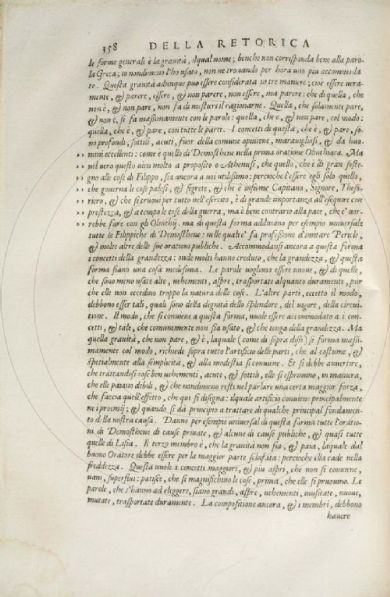 358 DELLA RETORICA
le forme generali è la gravità, il qual nome; benche non corrisponda bene alla paro-
la Greca; io nondimeno l'ho usato, non trovando per hora uno piu accommoda
to. Questa gravità adunque può essere considerata in tre maniere; cioè essere vera-
mente, & parere, essere, & non parere, non essere, ma parere: che di quella, che
non è, & non pare, non fa di mostieri il ragionarne. Quella, che solamente pare,
& non è, si fa massimamente con le parole: quella, che è, & non pare, col modo:
quella, che è, & pare, con tutte le parti. I concetti di questa, che è, & pare, so-
no profondi, sottili, acuti, fuor della comune opinione, maravigliosi, & da huo-
mini eccellenti: come è quello di Demosthene nella prima oratione Olinthiaca. Ma
nel vero questo vien molto a proposito o Atheniesi, che quello, che è di gran soste-
gno alle cose di Filippo, sia ancora a noi utilissimo: percioche l'essere egli solo quello,
che governa le cose palesi, & segrete, & che è insieme Capitano, Signore, Thesо-
riero, & che si truoui per tutto nell'esercito, è di grande importanza all'esequire con
prestezza, & a tempo le cose della guerra, ma è bene contrario alla pace, che e' vor-
rebbe fare con gli Olinthij. ma di questa forma habbiamo per esempio universale
tutte le Filippiche di Demosthene: nelle quali e' fa professione d'imitare Pericle,
& molti altre delle sue orationi publiche. Accommodansi ancora a questa forma
i concetti della grandezza: onde molti hanno creduto, che la grandezza, & questa
forma siano una cosa medesima. Le parole vogliono essere nuove, & di quelle,
che sono meno usate alte, vehementi, aspre, trasportate alquanto duramente, pur
che elle non eccedino troppo la natura delle cose. L'altre parti, eccetto il modo,
debbono esser tali, quali sono della degnità dello splendore, del vigore, della circui-
tione. Il modo, che si conviene a questa forma, vuole essere accommodato a i con-
cetti, & tali, che comunemente non sia usato, & che tenga della grandezza. Ma
quella gravità, che non pare, & è, laquale (come di sopra dissi) si forma massi-
mamente col modo, richiede sopra tutto l'artificio delle parti, che al costume, &
spetialmente alla semplicità, & alla modestia si conviene. Et si debbe avvertire,
che trattandosi cose ben vehementi, acute, & sottili, elle si esprimino, in maniera,
che elle paiano deboli, & che nondimeno resti nel parlare una certa maggior forza,
che faccia quell'effetto, che qui si disegna: il quale artificio conviene principalmente
ne i proemij; & quando si dà principio a trattare di qualche principal fondamen-
to della nostra causa. Danno per esempio universal di questa forma tutte l'oratio-
ni di Demosthene di cause private, & alcune di cause publiche, & quasi tutte
quelle di Lisia. Il terzo membro è, che la gravità non sia, & paia, laquale dal
buono Oratore debbe essere per la maggior parte schifata: percioche ella cade nella
freddezza. Questa vuole i concetti maggiori, & piu aspri, che non si conviene,
vani, superflui: patisce, che si magnifichino le cose, prima, che elle si pruovino. Le
parole, che s'hanno ad eleggere, siano grandi, aspre, vehementi, inusitate, nuove,
mutate, trasportate duramente. La compositione ancora, & i membri, debbono
havere